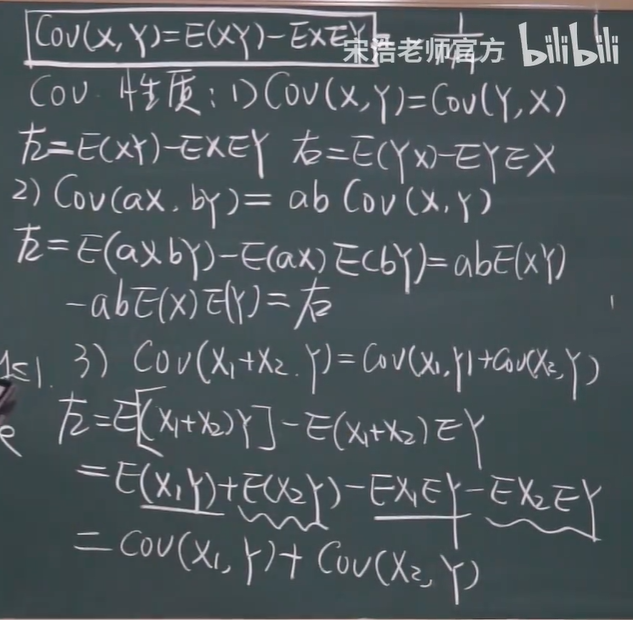 Cov(X,Y)=E(XY)-EXEY
宋浩老师官方 bilibili
Cov 性质:1) Cov(X,Y)=Cov(Y,X)
左=E(XY)-EXEY 右=E(YX)-EYEX
2) Cov(aX,bY)= ab Cov(X,Y)
左=E(aXbY)-E(aX)E(bY)=abE(XY)
-abE(X)E(Y)=右
3) Cov(X₁+X₂,Y)=Cov(X₁,Y)+Cov(X₂,Y)
左=E[(X₁+X₂)Y]-E(X₁+X₂)EY
=E(X₁Y)+E(X₂Y)-EX₁EY-EX₂EY
=Cov(X₁,Y)+Cov(X₂,Y)